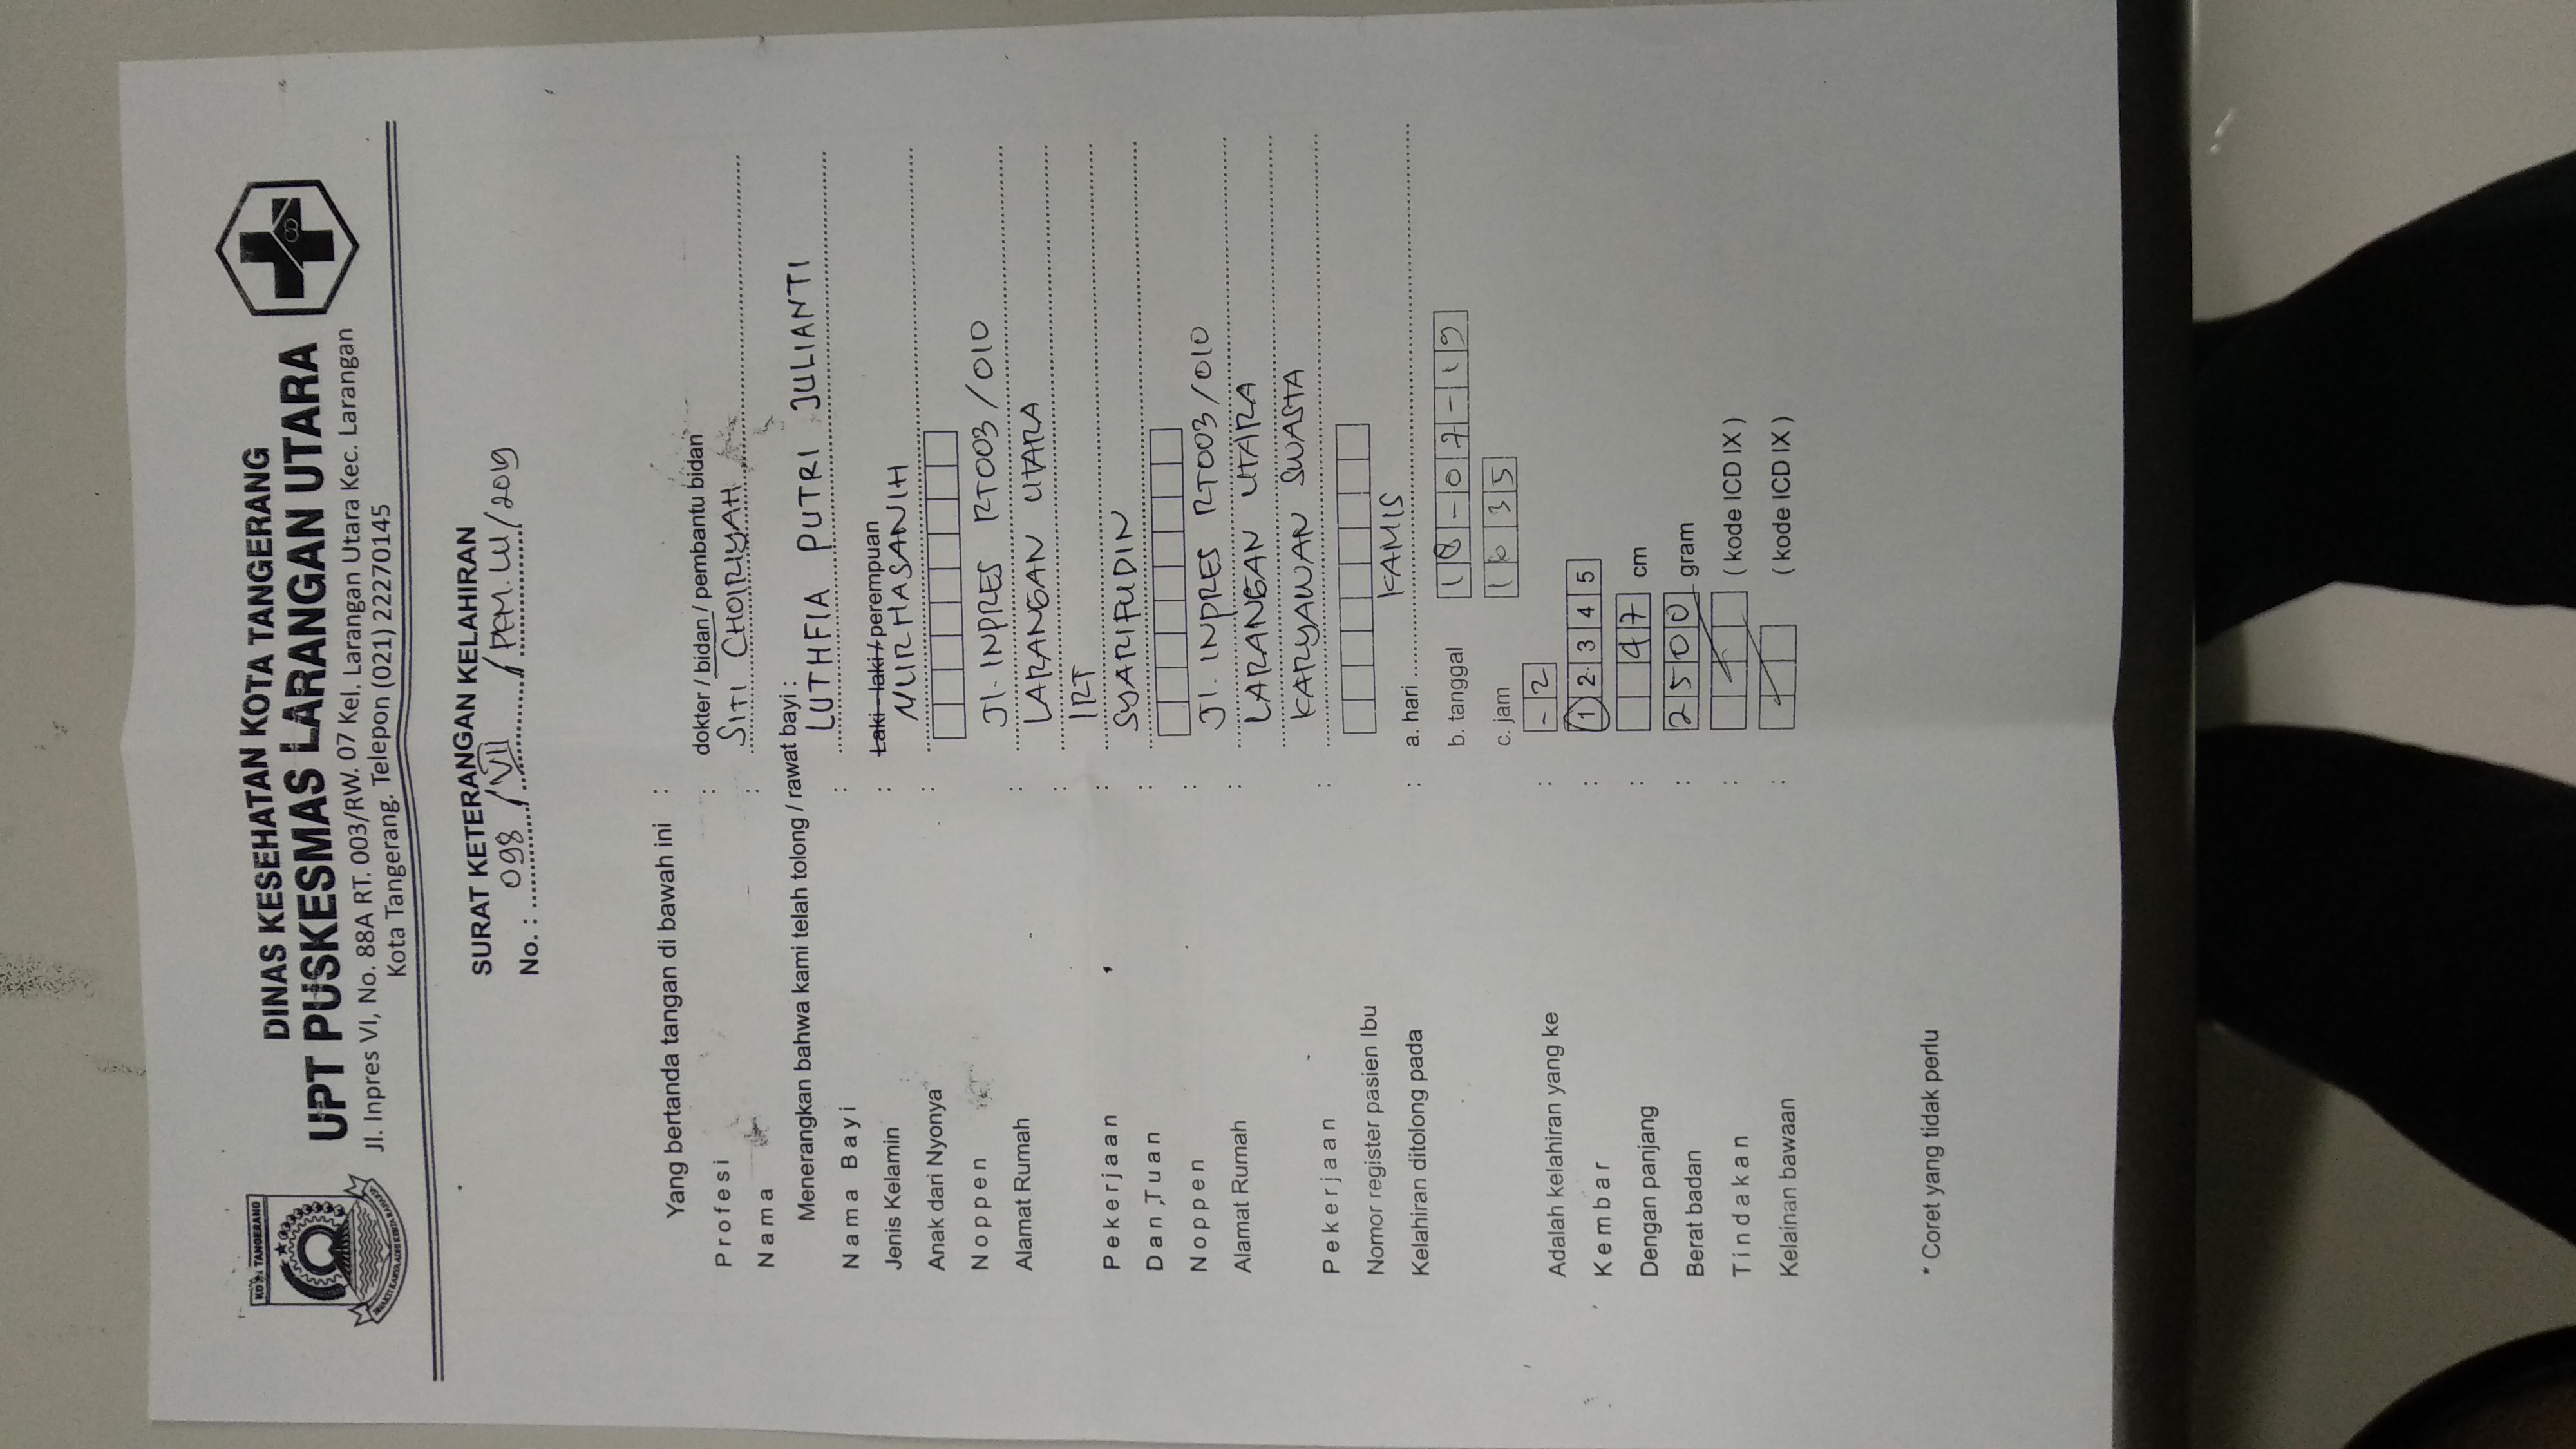 KOTA TANGERANG
BHAKTI KARYA ADHI KERTA RAHARJA
DINAS KESEHATAN KOTA TANGERANG
UPT PUSKESMAS LARANGAN UTARA
Jl. Inpres VI, No. 88A RT. 003/RW. 07 Kel. Larangan Utara Kec. Larangan
Kota Tangerang. Telepon (021) 22270145
SURAT KETERANGAN KELAHIRAN
No. : 098 / VII / PKM. LU / 2019
Yang bertanda tangan di bawah ini :
Profesi : dokter / bidan / pembantu bidan
Nama : SITI CHOIRIYAH
Menerangkan bahwa kami telah tolong / rawat bayi :
Nama Bayi : LUTHFIA PUTRI JULIANTI
Jenis Kelamin : Laki - laki / perempuan
Anak dari Nyonya : NURHASANIH
Noppen
Alamat Rumah : Jl. INPRES RT003/010
: LARANGAN UTARA
Pekerjaan : IRT
Dan Tuan : SYARIFUDIN
Noppen :
Alamat Rumah : Jl. INPRES RT003/010
LARANGAN UTARA
Pekerjaan : KARYAWAN SWASTA
Nomor register pasien Ibu
Kelahiran ditolong pada : a. hari KAMIS
b. tanggal 18-07-19
c. jam 1635
Adalah kelahiran yang ke : - 2
Kembar : 1 2 3 4 5
Dengan panjang : 47 cm
Berat badan : 2500 gram
Tindakan : ( kode ICD IX )
Kelainan bawaan : ( kode ICD IX )
* Coret yang tidak perlu